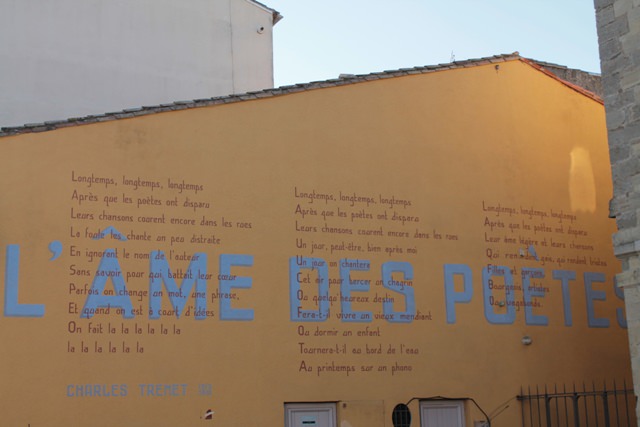 L'ÂME DES POÈTES
Longtemps, longtemps, longtemps
Après que les poètes ont disparu
Leurs chansons courent encore dans les rues
La foule les chante un peu distraite
En ignorant le nom de l'auteur
Sans savoir pour qui battait leur cœur
Parfois on change un mot, une phrase,
Et quand on est à court d'idées
On fait la la la la la la
la la la la la la
CHARLES TRENET
Longtemps, longtemps, longtemps
Après que les poètes ont disparu
Leurs chansons courent encore dans les rues
Un jour, peut-être, bien après moi
Un jour on chantera
Cet air pour bercer un chagrin
Ou quelqu'heureux destin
Fera-t-il vivre un vieux mendiant
Ou dormir un enfant
Tournera-t-il au bord de l'eau
Au printemps sur un phono
Longtemps, longtemps, longtemps
Après que les poètes ont disparu
Leur âme légère et leurs chansons
Qui rendent gais, qui rendent tristes
Filles et garçons
Bourgeois, artistes
Ou vagabonds.